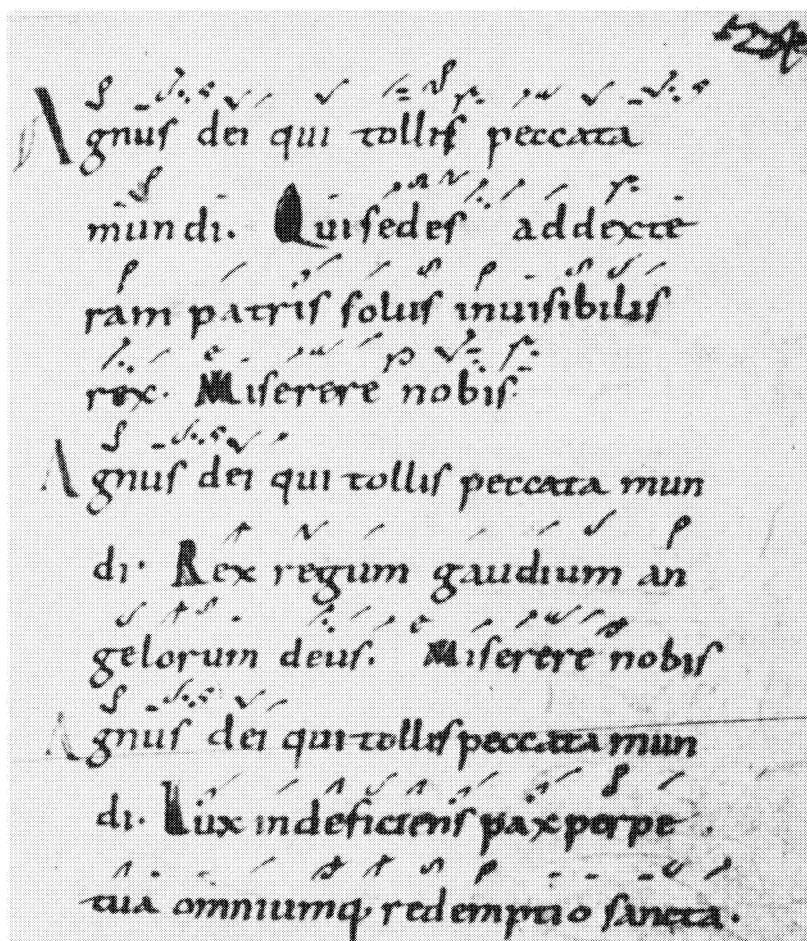 Agnus dei qui tollis peccata
mundi. Qui sedes ad dexte
ram patris solus inuisibilis
rex. Miserere nobis.
Agnus dei qui tollis peccata mun
di. Rex regum gaudium an
gelorum deus. Miserere nobis
Agnus dei qui tollis peccata mun
di. Lux indeficiens pax perpe
tua omniumq; redemptio sancta.